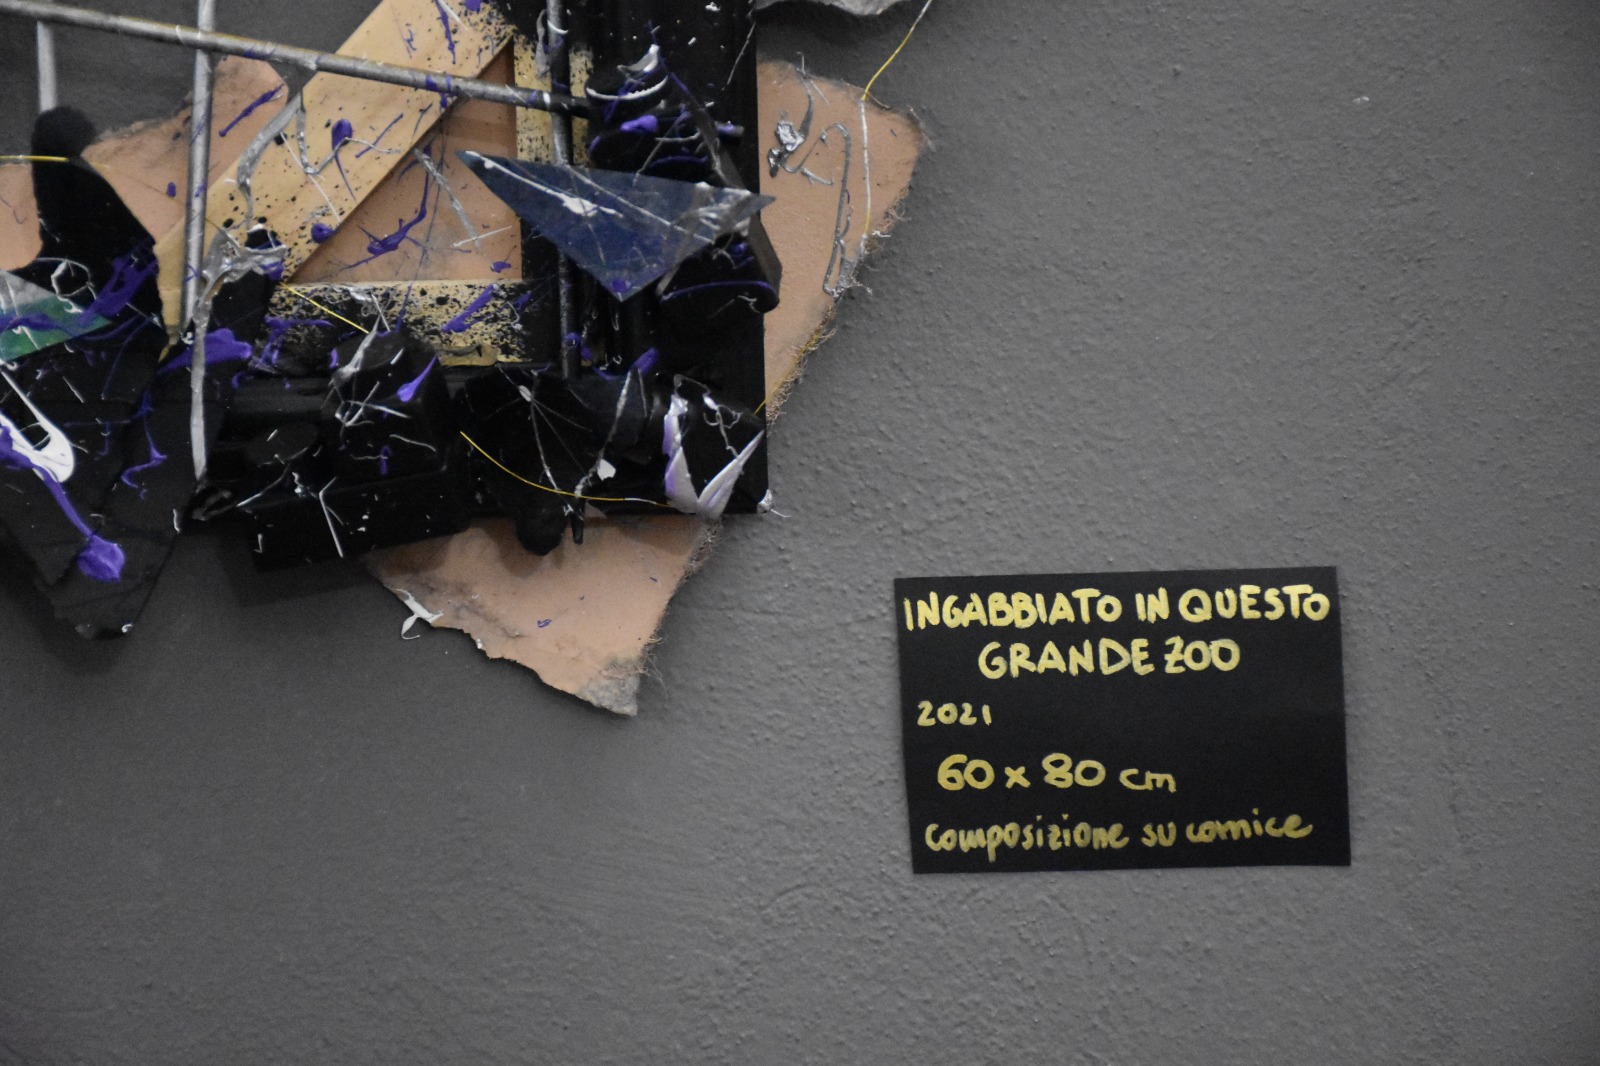 INGABBIATO IN QUESTO
GRANDE ZOO
2021
60 x 80 cm
composizione su cornice